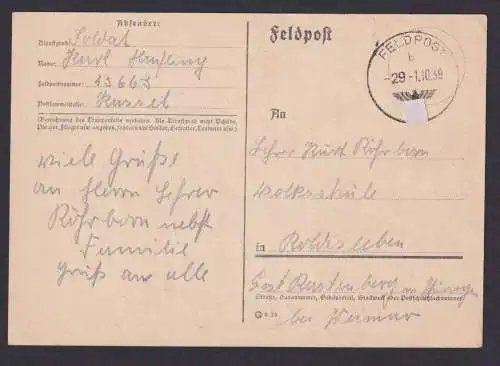 Absender:
Dienstgrad: Soldat
Name: Karl
Feldpostnummer: 13663
Postsammelstelle: Kassel
(Bezeichnung des Truppenteils verboten. Als Dienstgrad nicht Schütze,
Pionier, Flieger usw. angeben, sondern nur Soldat, Gefreiter, Leutnant usw.)
viele Grüße
an Herrn Lehrer
Röhrborn nebst
Familie
Gruß an alle
Feldpost
FELDPOST
b
-29-1.10.39
An
Lehrer Kurt Röhrborn
Volksschule
in Roldisleben
Post Rastenberg in Thüringen
Straße, Hausnummer, Gebäudeteil, Stockwerk oder Postschließfachnummer
bei Weimar